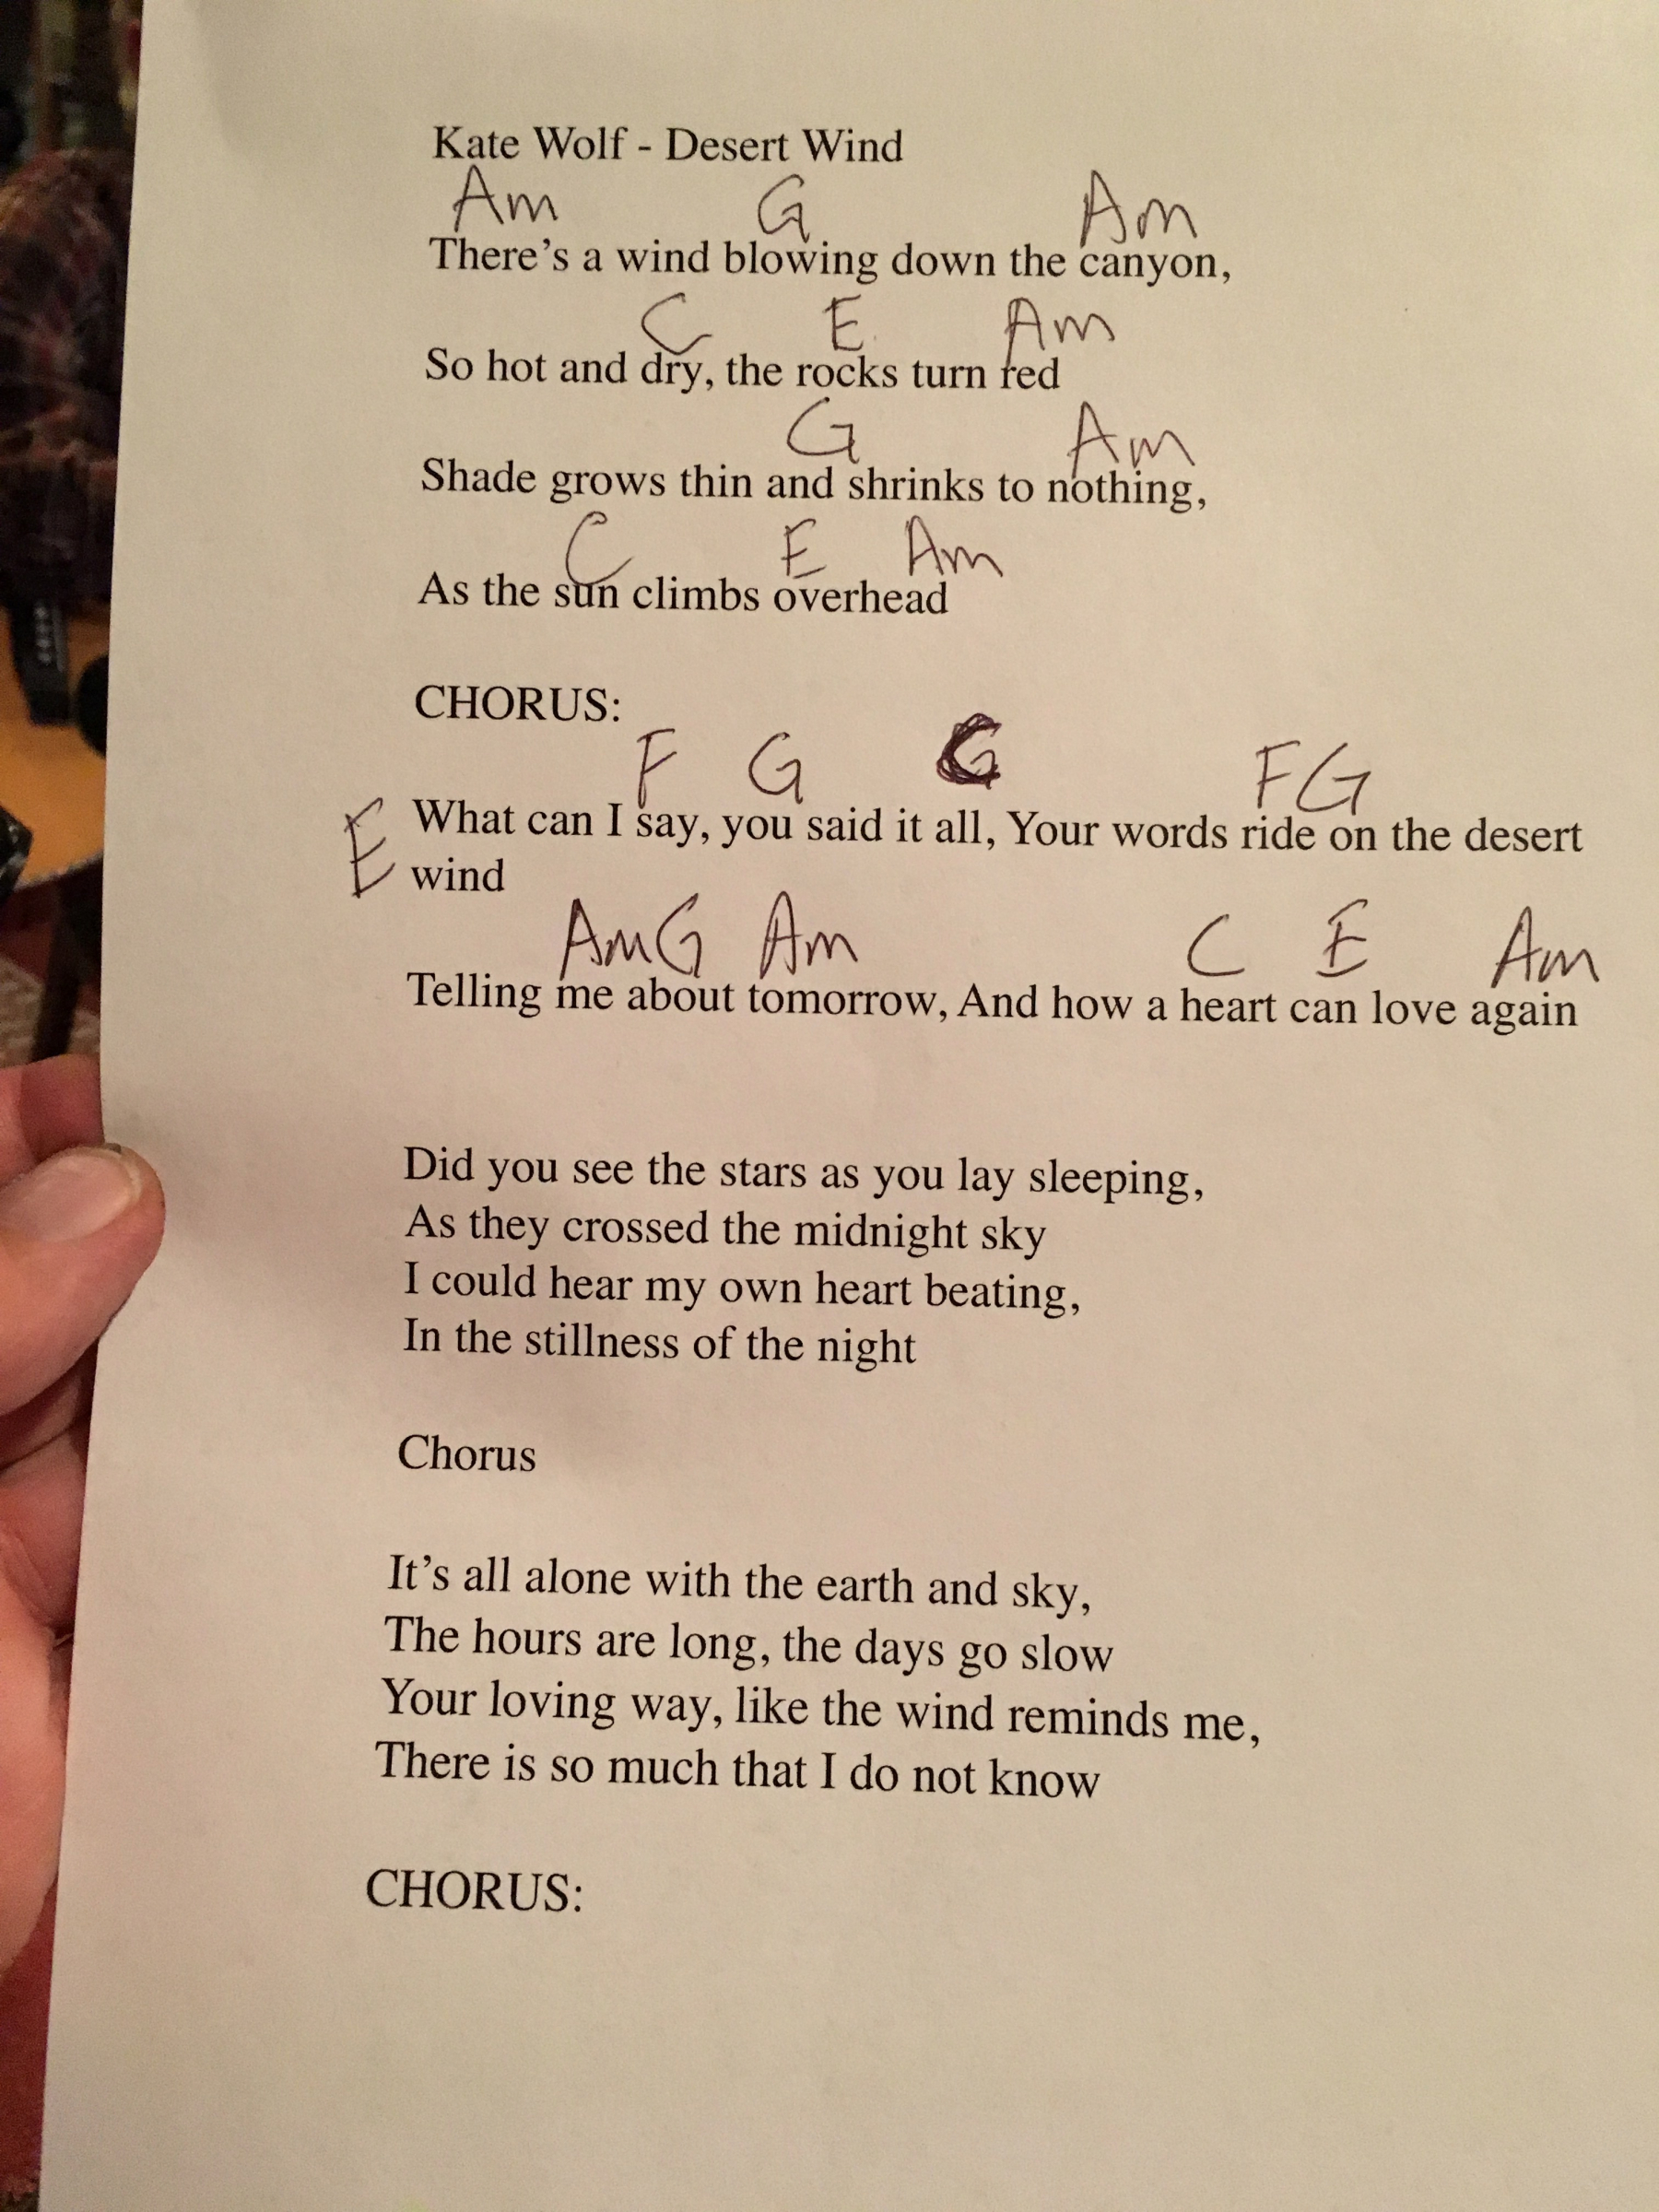 Kate Wolf - Desert Wind
Am G Am
There's a wind blowing down the canyon,
C E Am
So hot and dry, the rocks turn red
G Am
Shade grows thin and shrinks to nothing,
C E Am
As the sun climbs overhead
CHORUS:
F G F G
What can I say, you said it all, Your words ride on the desert
E wind
Am G Am C E Am
Telling me about tomorrow, And how a heart can love again
Did you see the stars as you lay sleeping,
As they crossed the midnight sky
I could hear my own heart beating,
In the stillness of the night
Chorus
It's all alone with the earth and sky,
The hours are long, the days go slow
Your loving way, like the wind reminds me,
There is so much that I do not know
CHORUS: